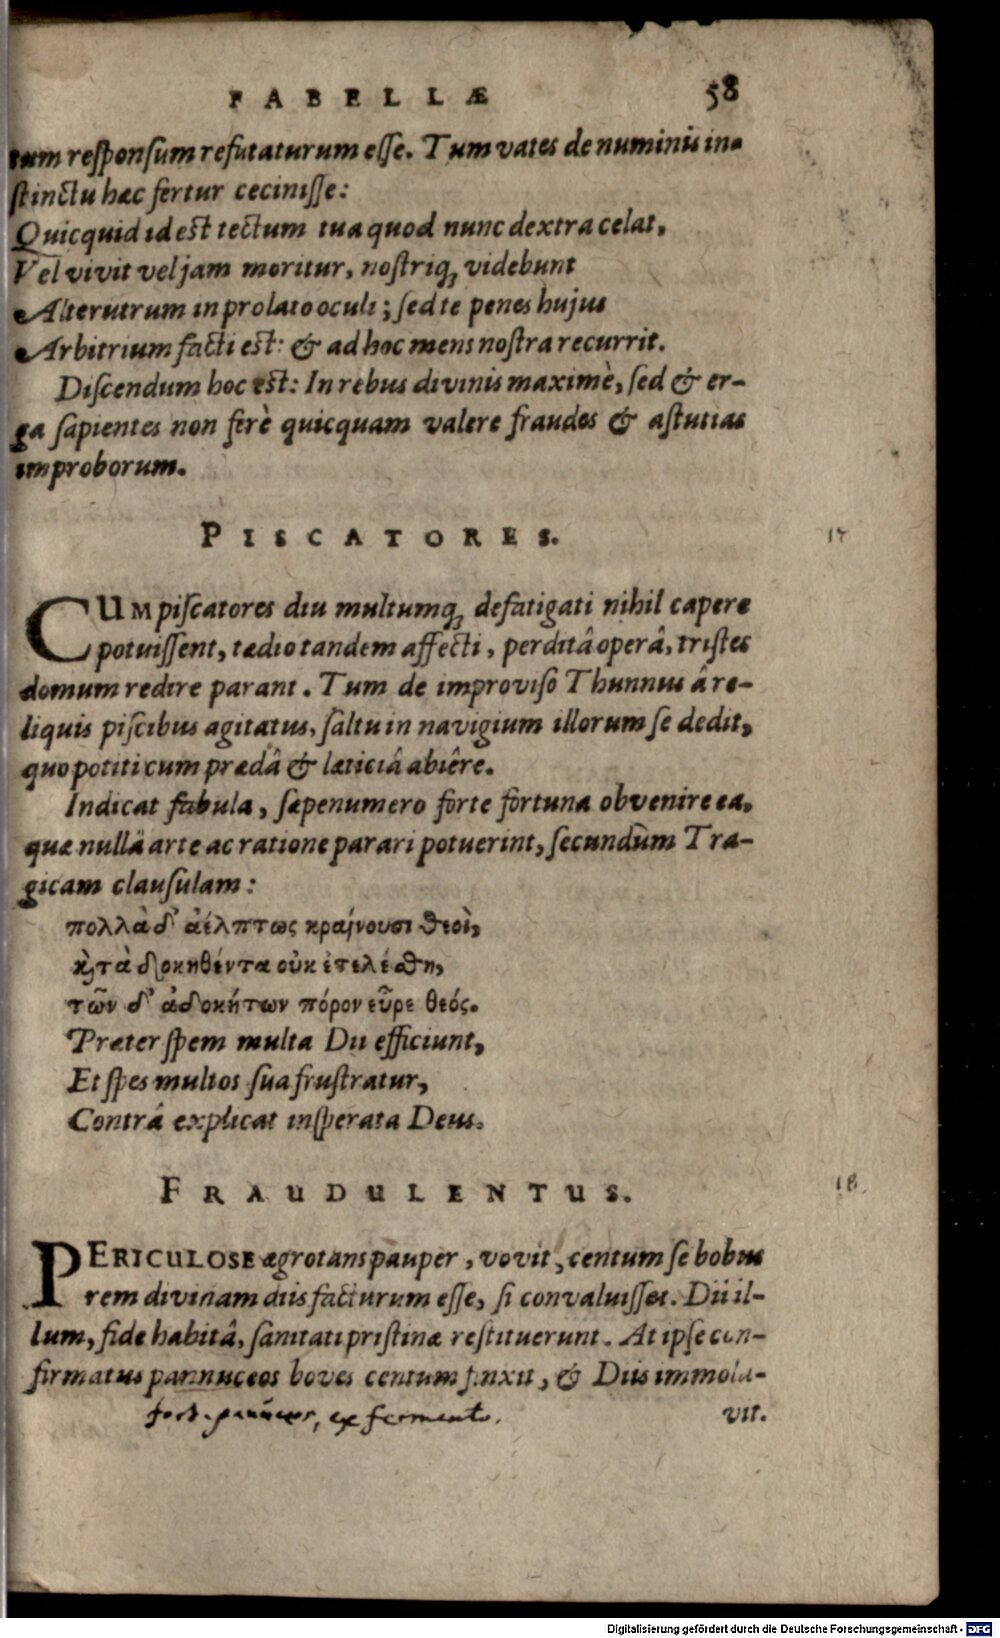 FABELLÆ 58
tum responsum refutaturum esse. Tum vates de numinis in-
stinctu hæc fertur cecinisse:
Quicquid id est tectum tua quod nunc dextra celat,
Vel vivit vel jam moritur, nostriq; videbunt
Alterutrum in prolato oculi; sed te penes hujus
Arbitrium facti est: & ad hoc mens nostra recurrit.
Discendum hoc est: In rebus divinis maximè, sed & er-
ga sapientes non ferè quicquam valere fraudes & astutias
improborum.
PISCATORES. 17
CUM piscatores diu multumq; defatigati nihil capere
potuissent, tædio tandem affecti, perditâ operâ, tristes
domum redire parant. Tum de improviso Thunnus â re-
liquis piscibus agitatus, saltu in navigium illorum se dedit,
quo potiti cum prædâ & læticiâ abiêre.
Indicat fabula, sæpenumero forte fortuna obvenire ea,
quæ nullâ arte ac ratione parari potuerint, secundùm Tra-
gicam clausulam:
πολλὰ δ' ἀέλπτως κραίνουσι θεοὶ,
κὶ τὰ δοκηθέντα οὐκ ἐτελέσθη,
τῶν δ' ἀδοκήτων πόρον εὗρε θεός.
Præter spem multa Dii efficiunt,
Et spes multos sua frustratur,
Contrâ explicat insperata Deus.
FRAUDULENTUS. 18.
PERICULOSE ægrotans pauper, vovit, centum se bobus
rem divinam diis facturum esse, si convaluisset. Dii il-
lum, fide habitâ, sanitati pristinæ restituerunt. At ipse con-
firmatus pannuceos boves centum finxit, & Diis immola-
vit.
fort. paniceos, ex fermento.